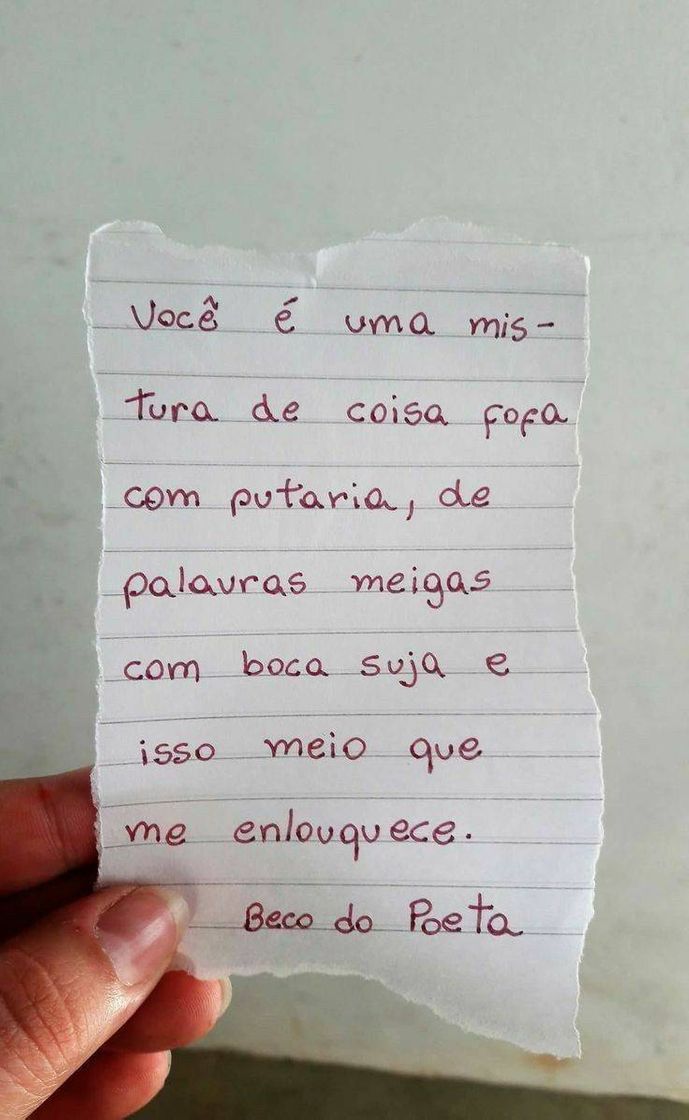 Você é uma mis-
tura de coisa fofa
com putaria, de
palavras meigas
com boca suja e
isso meio que
me enlouquece.
Beco do Poeta